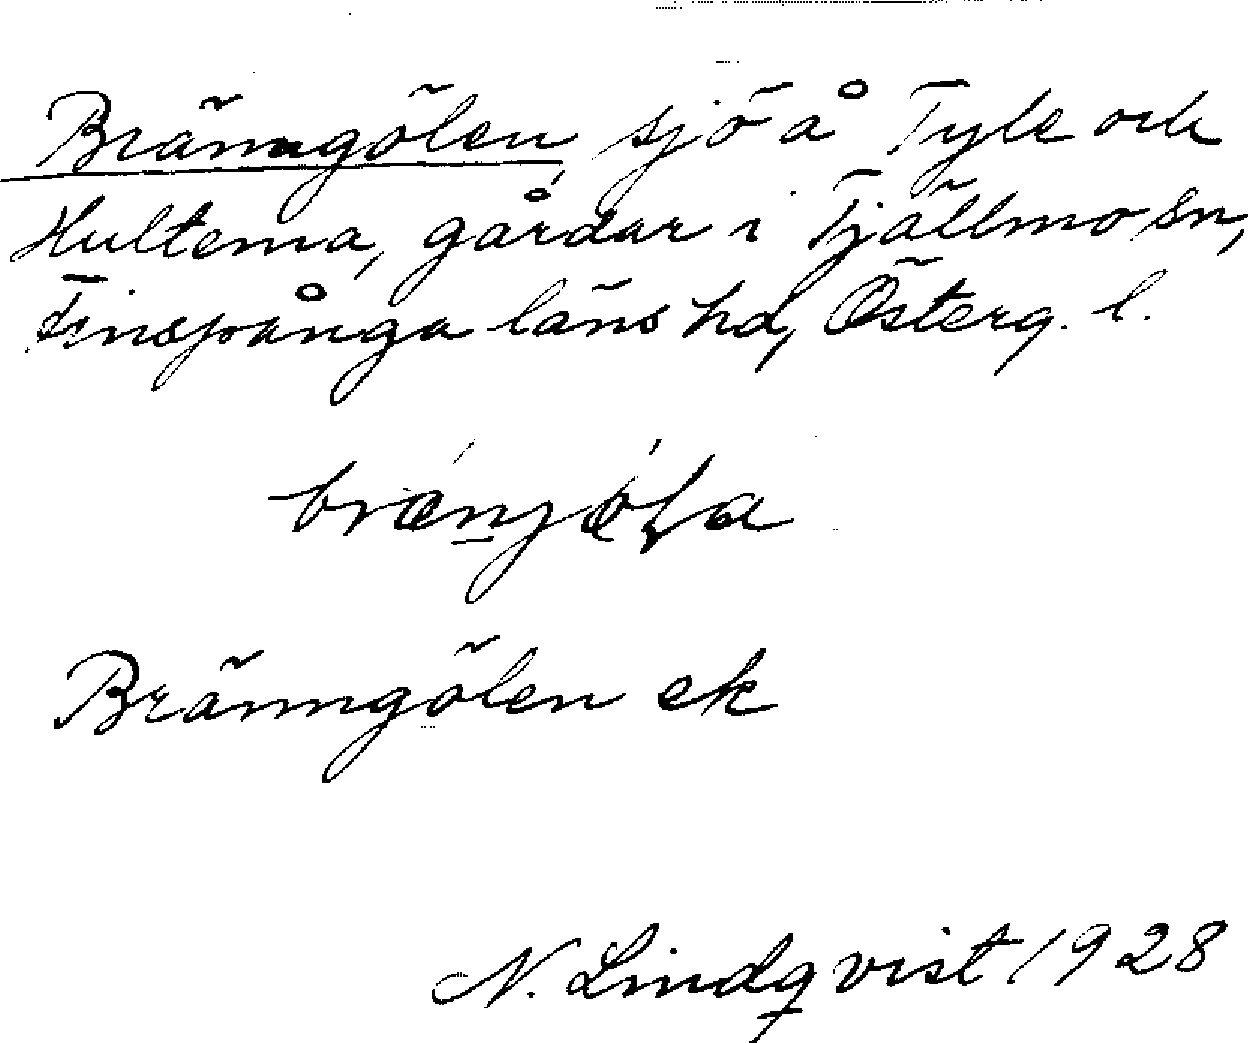 Bränngölen, sjö å Tyle och
Hultema, gårdar i Tjällmo sn,
Finspånga läns hd, Österg. l.
Bränngölen ek
N. Lindqvist 1928